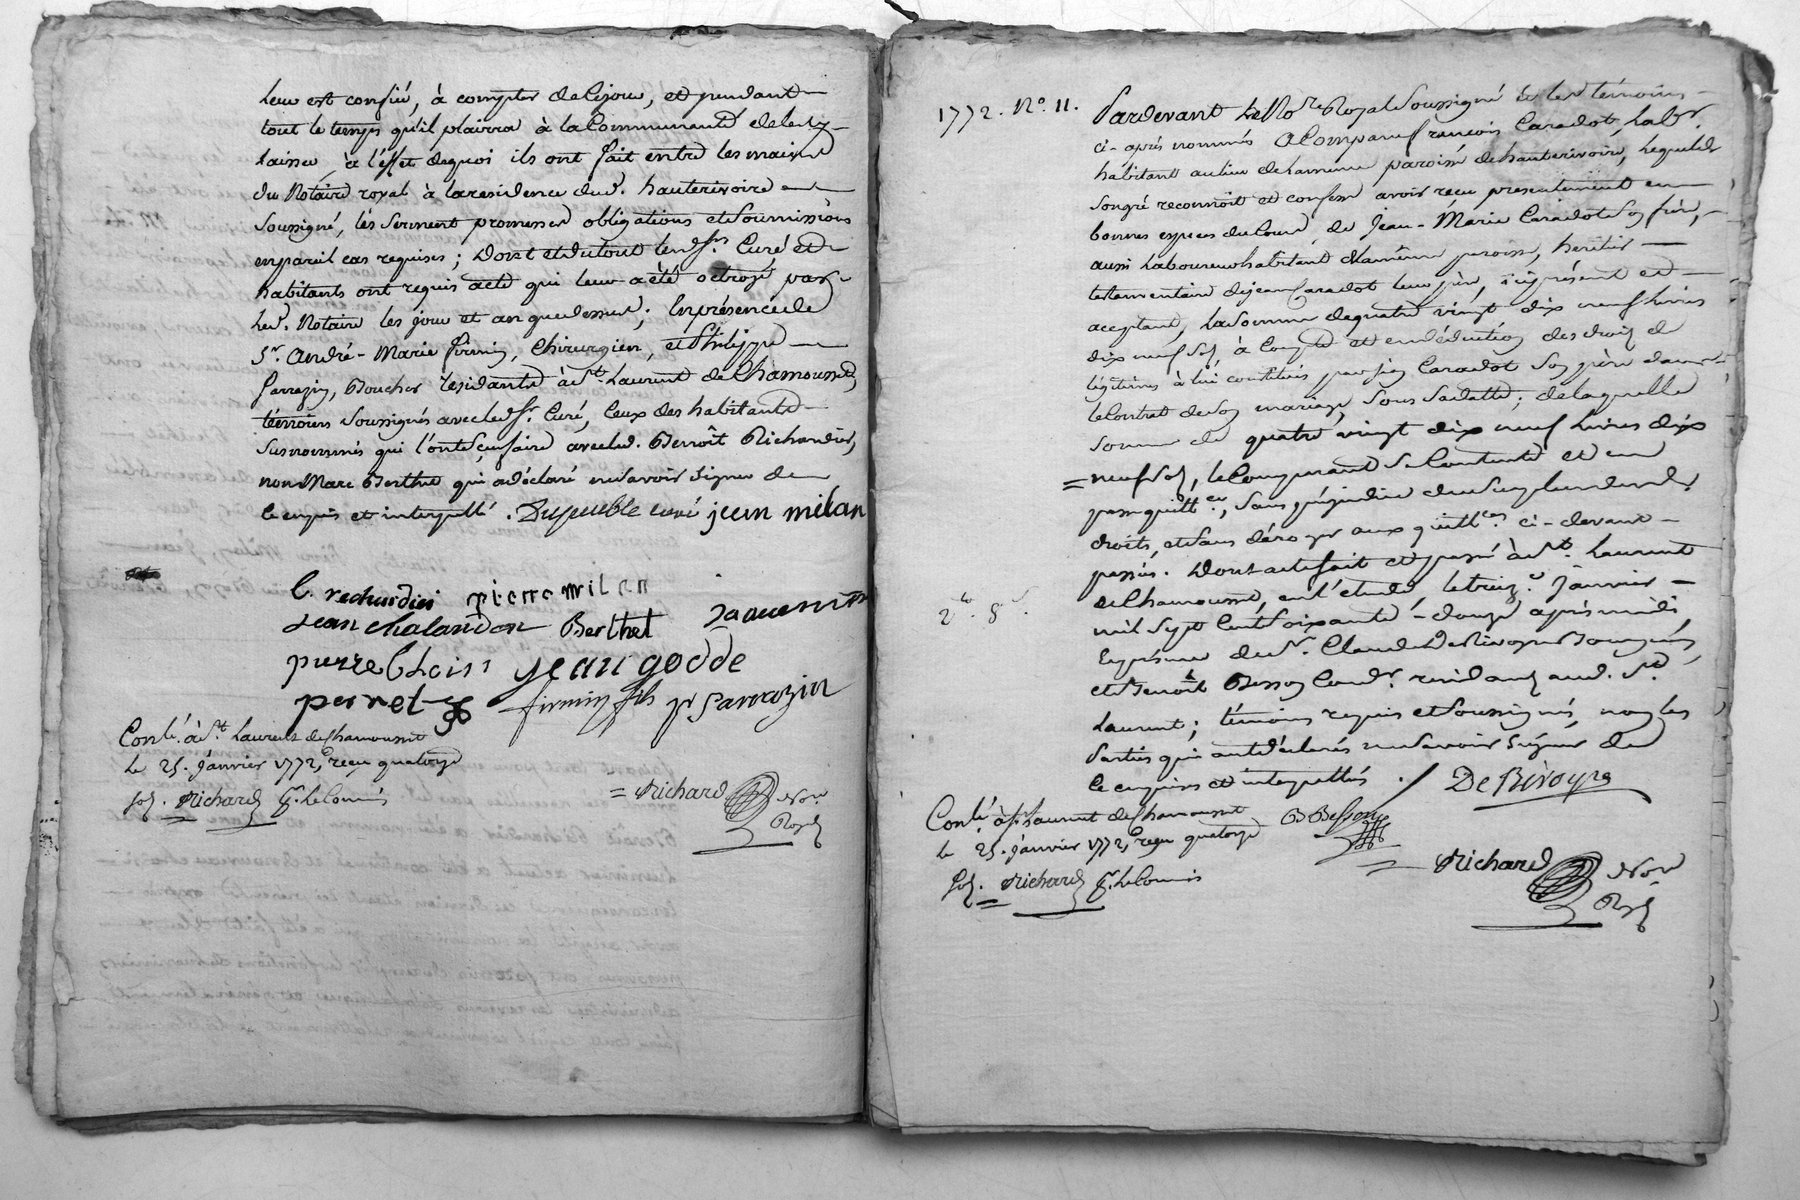 leur est confié, à compter de ce jour, et pendant
tout le temps qu'il plairra à la Communauté de les y
laisser, à l'effet dequoi ils ont fait entre les mains
du Notaire royal à la residence dud. hauterivoire
soussigné, les serment promesses obligations et soumissions
en pareil cas requises ; Dont et du tout lesd. srs Curé et
habitants ont requis acte qui leur a été octroyé par
led. Notaire les jour et an que dessus ; En présence de
Sr. André-Marie firmin, Chirurgien, et Philippe
Sarrazin, Boucher residants à St. Laurent de Chamousset,
témoins soussignés avec led. sr. Curé, Ceux des habitants
susnommés qui l'ont sçu faire avec led. Benoît Richardier,
non Marc Berthet qui a déclaré ne savoir signer de
ce enquis et interpellé. Dupeuble curé jean milan
b. rechardiei pierre milan
Jean chalandon Berthet Jaquemet
pierre Chois jean godde
perret firmin fils pr Sarrazin
Conlé. à St. Laurent de Chamousset
le 25. Janvier 1772, reçu quatorze
sols. Richard pr. le Commis
= Richard Nore
Royal
1772. No. 11. Pardevant Le Nore Royal Soussigné & les témoins
ci-après nommés a Comparu françois Caradot, Labr.
habitant au lieu de paroisse de hauterivoire, Lequel de
son gré reconnoit et confesse avoir reçu presentement en
bonnes especes du Cours, de Jean-Marie Caradot Son frère,
aussi Laboureur habitant même paroisse, heritier
testamentaire de jean Caradot leur père, ici présent et
acceptant, La Somme de quatre vingt dix neuf Livres
dix neuf sols, à Compte et en déduction des droits de
légitime à lui constitués par feu Caradot Son père dans
le Contrat de son mariage, sous sa datte ; de laquelle
somme de quatre vingt dix neuf Livres dix
= neuf sols, le Comparant se Contente et en
passe quittce., sans préjudice du surplus desd.
droits, et sans déroger aux quittces. ci-devant
passées. Dont acte fait et passé à St. Laurent
de Chamousset, en l'étude, le treize Janvier
mil Sept Cent Soixante-douze après midi
En présence de Sr. Claude DeRivoyre Bourgeois,
et Benoît Besson Cordr. residants aud. St.
Laurent ; témoins requis et soussignés, non les
Parties qui ont déclarés ne savoir signer de
ce enquises et interpellées ./ De Rivoyre
Conlé. à St Laurent de Chamousset B Besson
le 25. janvier 1772, reçu quatorze
sols. Richard pr. le Commis
= Richard Nore
Royal